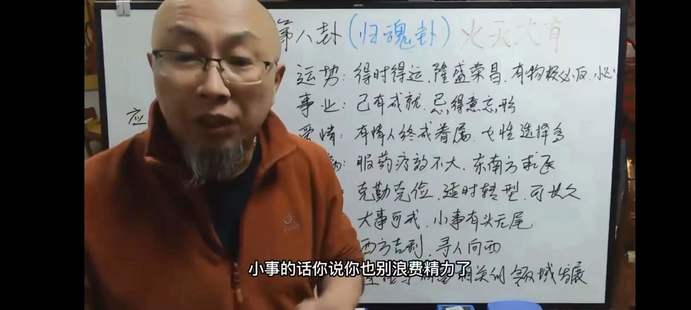 第八卦(归魂卦) 火天大有
运势:得时得运、隆盛荣昌、有物极必反、小心
事业:已有成就、忌得意忘形
应
爱情:有情人终成眷属、女性选择多
服药疗效不大、东南方求医
克勤克俭、适时转型、可长久
大事可成、小事有头无尾
西方吉利、寻人向西
小事的话你说你也别浪费精力了
相关的领域发展